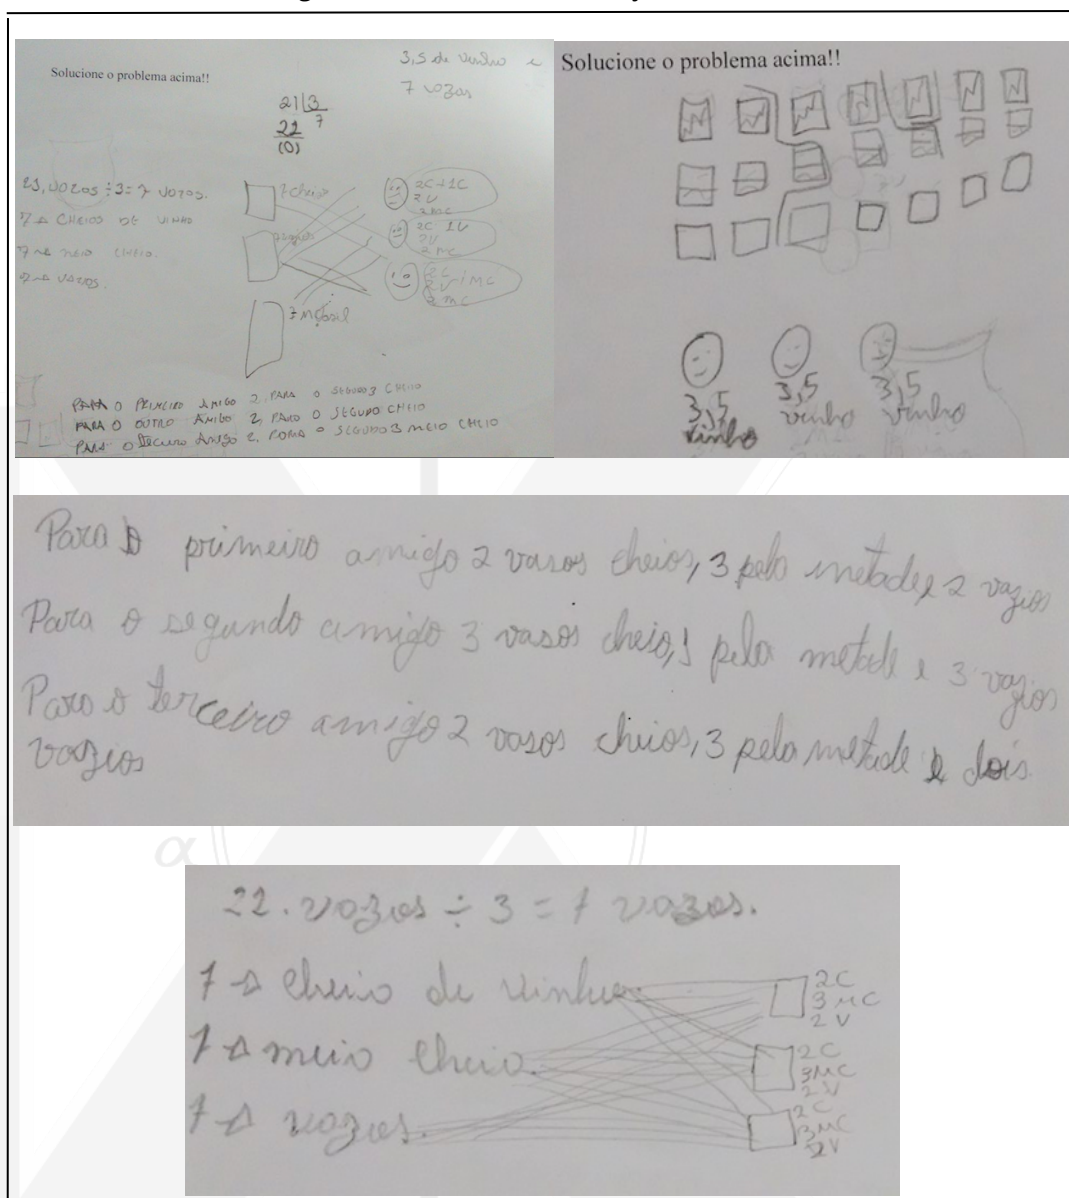 Solucione o problema acima!!
3,5 de vinho e
7 vozas
21 3
22 7
(0)
21, vozos ÷ 3 = 7 vozos.
7 → CHEIOS DE VINHO
7 → MEIO CHEIO.
7 → VAZOS.
7 cheio
2C+1C
2V
2MC
2C 1V
2V
2MC
2C
2V 1MC
2MC
PARA O PRIMEIRO AMIGO 2, PARA O SEGUDO 3 CHEIO
PARA O OUTRO AMIGO 2, PARO O SEGUDO CHEIO
PARA O AMIGO 2, O SEGUDO 3 MEIO CHEIO
Solucione o problema acima!!
3,5
vinho
3,5
vinho
3,5
vinho
Para o primeiro amigo 2 vasos cheios, 3 pela metade e 2 vazios
Para o segundo amigo 3 vasos cheio, 1 pela metade e 3 vazios
Para o terceiro amigo 2 vasos cheios, 3 pela metade e dois
vazios
22. vozos ÷ 3 = 7 vozos.
7 → cheio de vinho.
7 → meio cheio.
7 → vozios.
2C
3MC
2V
2C
3MC
2V
2C
3MC
2V
α